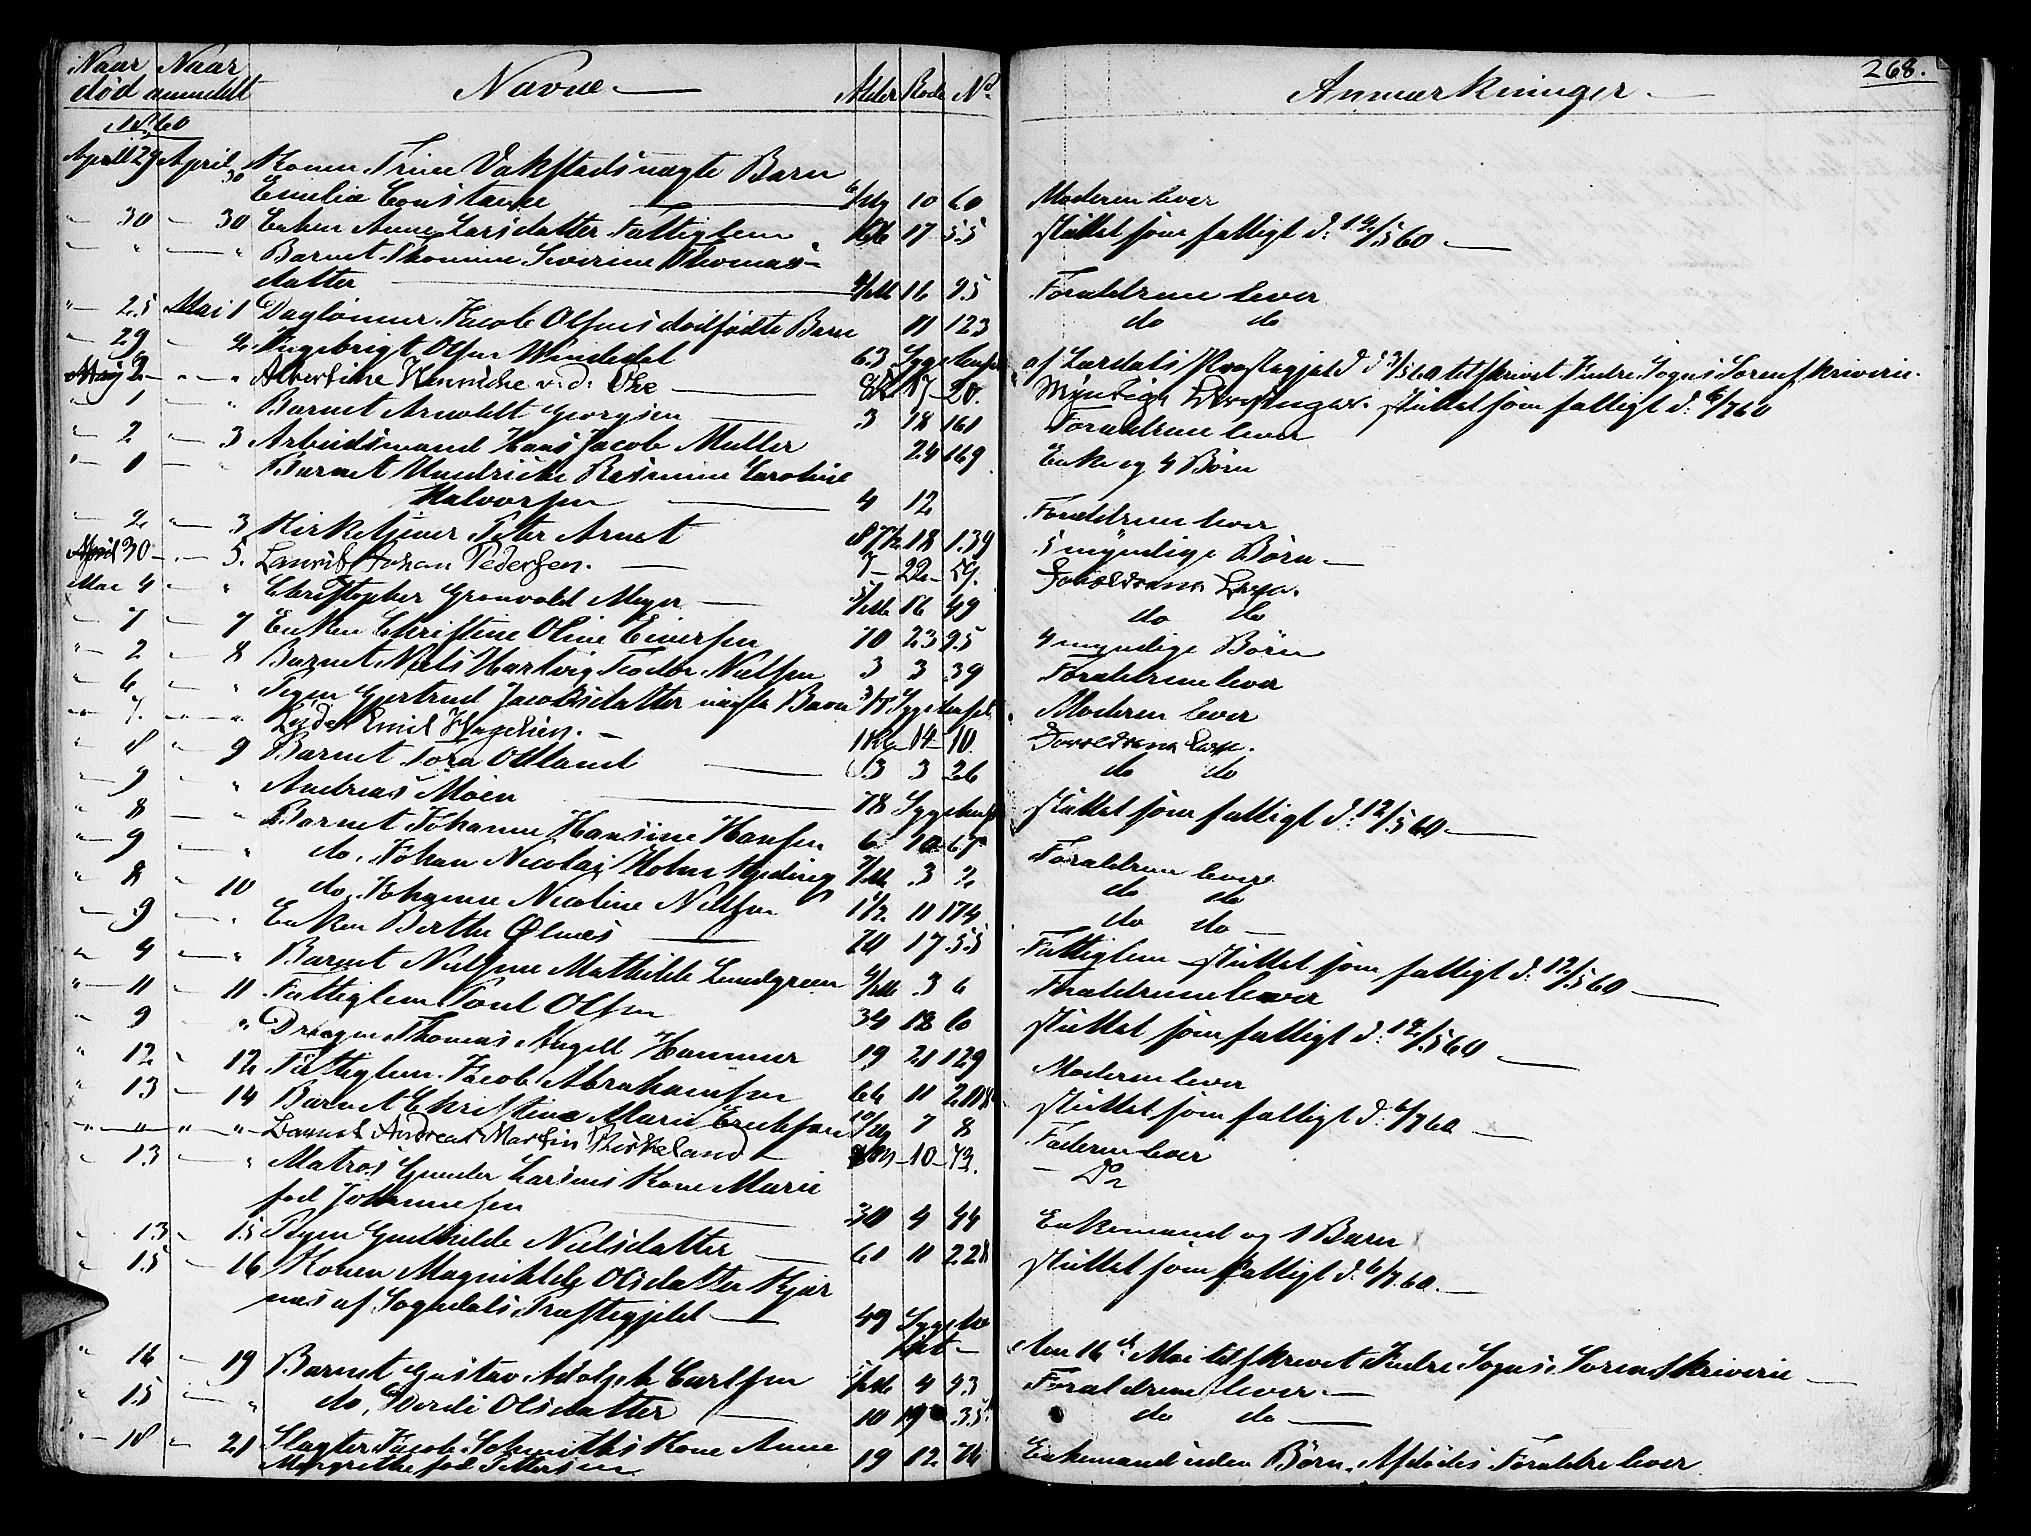 268.
Naar død Naar anmeldt Navne Alder Rode No. Anmærkninger
1860
April 29 April 30 Konen Trine Vakstads uægte Barn
Emelia Constance 10 60 Moderen lever
" 30 — 30 Enken Anne Larsdatter Fattiglem 17 55 sluttet som fattigt d: 12/5 60
" — " Barnet Thomine Severine Thomas-
datter 16 95 Forældrene lever
" 25 Mai 1 Daglönner Jacob Olsens dødfødte Barn 11 123 do do
" 29 — 2 Ingebrigt Olsen Vindedal 63 Sygehuset af Lærdals Præstegjeld d 3/5 60 tilskrivet Indre Sogns Sorenskriveri.
May 2 — " Albertine Henriche v. d. Ohe 17 20. Myndige Arvinger. sluttet som fattigt d: 6/7 60
" 1 " Barnet Arnoldt Georgsen 3 18 161 Forældrene lever
" 2 — 3 Arbeidsmand Hans Jacob Muller 24 169 Enke og 4 Børn
" 1 — " Barnet Hendricke Rasmine Caroline
Halvorsen 4 12 Forældrene lever
" 2 — 3 Kirketjener Peter Arnet 87 1/2 18 139 5 myndige Børn
April 30 — 5. Laurits Johan Pedersen. 7 22 59. Forældrene Leve.
Mai 4 " Christopher Grønvold Meyer 16 49 do do
" 7 — 7 Enken Christine Oline Eiversen 70 23 95 4 myndige Børn
" 2 — 8 Barnet Niels Hartvig Teodor Nielsen 3 3 39 Forældrene lever
" 6 — " Pigen Gjertrud Jacobsdatter uægte Barn Sygehuset Moderen lever
" 7. " Lyder Emil Hagelsen. 14 10. Forældrene Leve.
" 8 " 9 Barnet Tora Odland 13 3 26 do do
" 9 " Andreas Moen 78 Sygehuset sluttet som fattigt d: 12/5 60
" 8 — " Barnet Johanne Hansine Hansen 6 10 67 Forældrene lever
" 9 — " do. Johan Nicolai Holm Hjeding 3 2 do do
" 8 — 10 do. Johanne Nicoline Nielsen 1 1/2 11 174 do do
— 9 — " Enken Berthe Ølnes 70 17 55 Fattiglem sluttet som fattigt d: 12/5 60
" 4 — " Barnet Nielsine Mathilde Lundgreen 3 6 Forældrene lever
" 11 — 11 Fattiglem Poul Olsen 34 18 60 sluttet som fattigt d: 12/5 60
" 9 " Drengen Thomas Angell Hammer 19 21 129 Moderen lever
" 12 " 12 Fattiglem Jacob Abrahamsen 66 11 208 sluttet som fattigt d: 6/7 60
" 13 — 14 Barnet Christine Marie Ericksen 7 8 Faderen lever
" " " Barnet Andreas Martin Kirkeland 10 43. Do
" 13 — " Matros Gunder Larsens Kone Marie
fød Johannesen 30 4 44 Enkemand og 1 Barn
" 13 — 15 Pigen Gunhilde Nielsdatter 60 11 228 sluttet som fattigt d. 6/7 60.
" 15 — 16 Konen Magnilde Olsdatter Kjør
nes af Sogndals Præstegjeld 49 Sygehu
set den 16de Mai tilskrevet Indre Sogns Sorenskriveri
" 16 — 19 Barnet Gustav Adolph Carlsen 4 93 Forældrene lever
" 15 — " do. Gjordi Olsdatter 10 19 35 do do
" 18 — 21 Slagter Jacob Schmiths Kone Anne
Margrethe fød Pettersen 19 12 76 Enkemand uden Børn. Afdødes Forældre lever